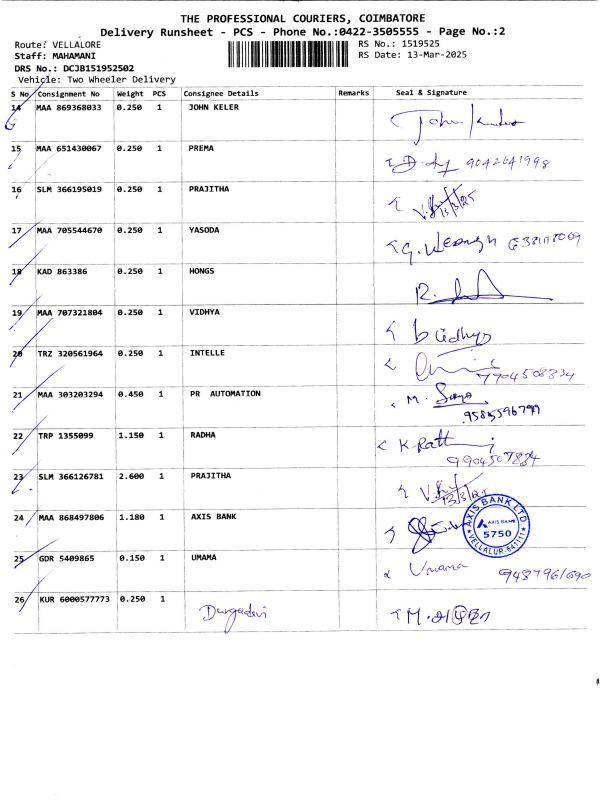 THE PROFESSIONAL COURIERS, COIMBATORE
Delivery Runsheet - PCS - Phone No.:0422-3505555 - Page No.:2
Route: VELLALORE
RS No.: 1519525
Staff: MAHAMANI
RS Date: 13-Mar-2025
DRS No.: DCJB151952502
Vehicle: Two Wheeler Delivery
S No Consignment No Weight PCS Consignee Details Remarks Seal & Signature
14 MAA 869368033 0.250 1 JOHN KELER John
15 MAA 651430067 0.250 1 PREMA 9042641998
16 SLM 366195019 0.250 1 PRAJITHA 13/3/25
17 MAA 705544670 0.250 1 YASODA G.
18 KAD 863386 0.250 1 HONGS R.
19 MAA 707321804 0.250 1 VIDHYA Vidhya
20 TRZ 320561964 0.250 1 INTELLE 7904508334
21 MAA 303203294 0.450 1 PR AUTOMATION M.
22 TRP 1355099 1.150 1 RADHA K.
23 SLM 366126781 2.600 1 PRAJITHA 13/3/25
24 MAA 868497806 1.180 1 AXIS BANK
AXIS BANK LTD
AXIS BANK
5750
VELLALUR-641111
25 GDR 5409865 0.150 1 UMAMA Umama 9487961690
26 KUR 6000577773 0.250 1 Durgadevi M.